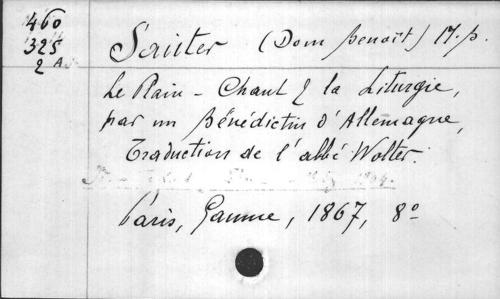 460
325
2 A
Sauter (Dom Benoît) 17. p.
Le Plain - Chant & la Liturgie,
par un Bénédictin d'Allemagne,
Traduction de l'abbé Wolter.
Paris, Gaume, 1867, 8º